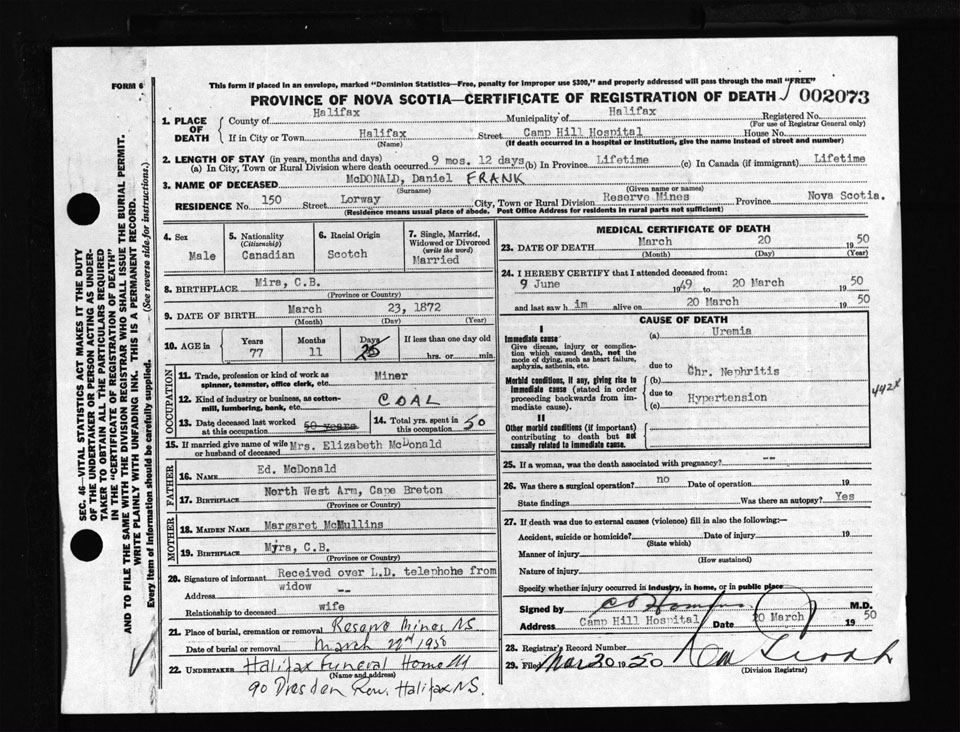 FORM 6
This form if placed in an envelope, marked "Dominion Statistics—Free, penalty for improper use $300," and properly addressed will pass through the mail "FREE"
PROVINCE OF NOVA SCOTIA—CERTIFICATE OF REGISTRATION OF DEATH 002073
1. PLACE OF DEATH
County of Halifax Municipality of Halifax Registered No.
(For use of Registrar General only)
If in City or Town Halifax Street Camp Hill Hospital House No.
(Name) (If death occurred in a hospital or institution, give the name instead of street and number)
2. LENGTH OF STAY (in years, months and days)
(a) In City, Town or Rural Division where death occurred 9 mos. 12 days (b) In Province Lifetime (c) In Canada (if immigrant) Lifetime
3. NAME OF DECEASED McDONALD, Daniel FRANK
(Surname) (Given name or names)
RESIDENCE No. 150 Street Lorway City, Town or Rural Division Reserve Mines Province Nova Scotia.
(Residence means usual place of abode. Post Office Address for residents in rural parts not sufficient)
4. Sex
Male
5. Nationality
(Citizenship)
Canadian
6. Racial Origin
Scotch
7. Single, Married, Widowed or Divorced
(write the word)
Married
8. BIRTHPLACE Mira, C.B.
(Province or Country)
9. DATE OF BIRTH March 23, 1872
(Month) (Day) (Year)
10. AGE in
Years Months Days If less than one day old
77 11 25 hrs. or min.
OCCUPATION
11. Trade, profession or kind of work as spinner, teamster, office clerk, etc. Miner
12. Kind of industry or business, as cotton-mill, lumbering, bank, etc. COAL
13. Date deceased last worked at this occupation 50 years
14. Total yrs. spent in this occupation 50
15. If married give name of wife or husband of deceased Mrs. Elizabeth McDonald
FATHER
16. NAME Ed. McDonald
17. BIRTHPLACE North West Arm, Cape Breton
(Province or Country)
MOTHER
18. MAIDEN NAME Margaret McMullins
19. BIRTHPLACE Myra, C.B.
(Province or Country)
20. Signature of informant Received over L.D. telephohe from
widow
Address --
Relationship to deceased wife
21. Place of burial, cremation or removal Reserve Mines NS
Date of burial or removal March 22nd 1950
22. UNDERTAKER Halifax Funeral Home
(Name and address)
90 Dresden Row. Halifax NS.
MEDICAL CERTIFICATE OF DEATH
23. DATE OF DEATH March 20 1950
(Month) (Day) (Year)
24. I HEREBY CERTIFY that I attended deceased from:
9 June 1949 to 20 March 1950
and last saw him alive on 20 March 1950
CAUSE OF DEATH
I
Immediate cause
Give disease, injury or complication which caused death, not the mode of dying, such as heart failure, asphyxia, asthenia, etc.
(a) Uremia
due to
Morbid conditions, if any, giving rise to immediate cause (stated in order proceeding backwards from immediate cause).
(b) Chr. Nephritis
due to
(c) Hypertension
442X
II
Other morbid conditions (if important) contributing to death but not causally related to immediate cause.
25. If a woman, was the death associated with pregnancy? --
26. Was there a surgical operation? no Date of operation 19
State findings Was there an autopsy? Yes
27. If death was due to external causes (violence) fill in also the following:—
Accident, suicide or homicide? Date of injury 19
(State which)
Manner of injury
(How sustained)
Nature of injury
Specify whether injury occurred in industry, in home, or in public place
Signed by M.D.
Address Camp Hill Hospital Date 20 March 1950
28. Registrar's Record Number
29. Filed Mar 20 1950
(Division Registrar)
SEC. 46—VITAL STATISTICS ACT MAKES IT THE DUTY
OF THE UNDERTAKER OR PERSON ACTING AS UNDERTAKER TO OBTAIN ALL THE PARTICULARS REQUIRED
IN THE "CERTIFICATE OF REGISTRATION OF DEATH"
AND TO FILE THE SAME WITH THE DIVISION REGISTRAR WHO SHALL ISSUE THE BURIAL PERMIT.
WRITE PLAINLY WITH UNFADING INK. THIS IS A PERMANENT RECORD.
Every item of Information should be carefully supplied. (See reverse side for instructions.)